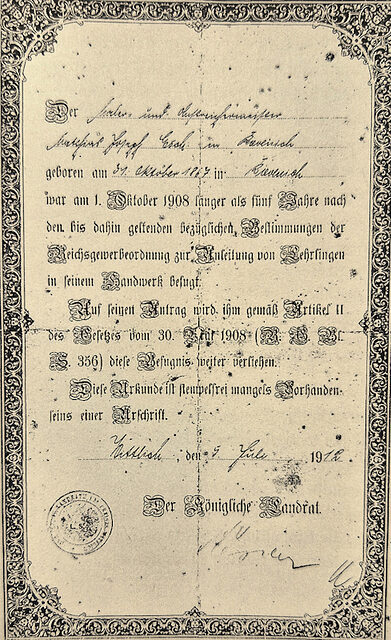 Der Maler- und Anstreichermeister
Matthias Josef Esch in Kaverisch
geboren am 31. Oktober 1867 in Kaverisch
war am 1. Oktober 1908 länger als fünf Jahre nach
den bis dahin geltenden bezüglichen Bestimmungen der
Reichsgewerbeordnung zur Anleitung von Lehrlingen
in seinem Handwerk befugt.
Auf seinen Antrag wird ihm gemäß Artikel II
des Gesetzes vom 30. Mai 1908 (R. G. Bl.
S. 356) diese Befugnis weiter verliehen.
Diese Urkunde ist stempelfrei mangels Vorhanden-
seins einer Urschrift.
Wittlich, den 5 Juli 1912
Der Königliche Landrat.